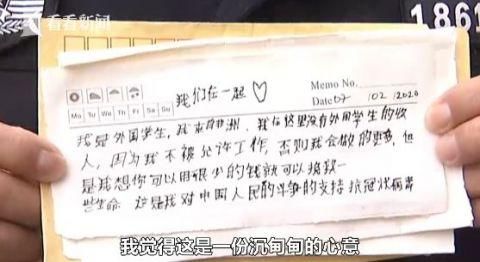 看看新闻
1861
我们在一起♡
Memo No.
Mo Tu We Th Fr Sa Su
Date 07 / 02 / 2020
我是外国学生，我来自非洲，我在这里没有外国学生的收
人，因为我不被允许工作，否则我会做的更多，但
是我想你可以用很少的钱就可以挽救一
些生命 这是我对中国人民的斗争的支持 抗冠状病毒
我觉得这是一份沉甸甸的心意